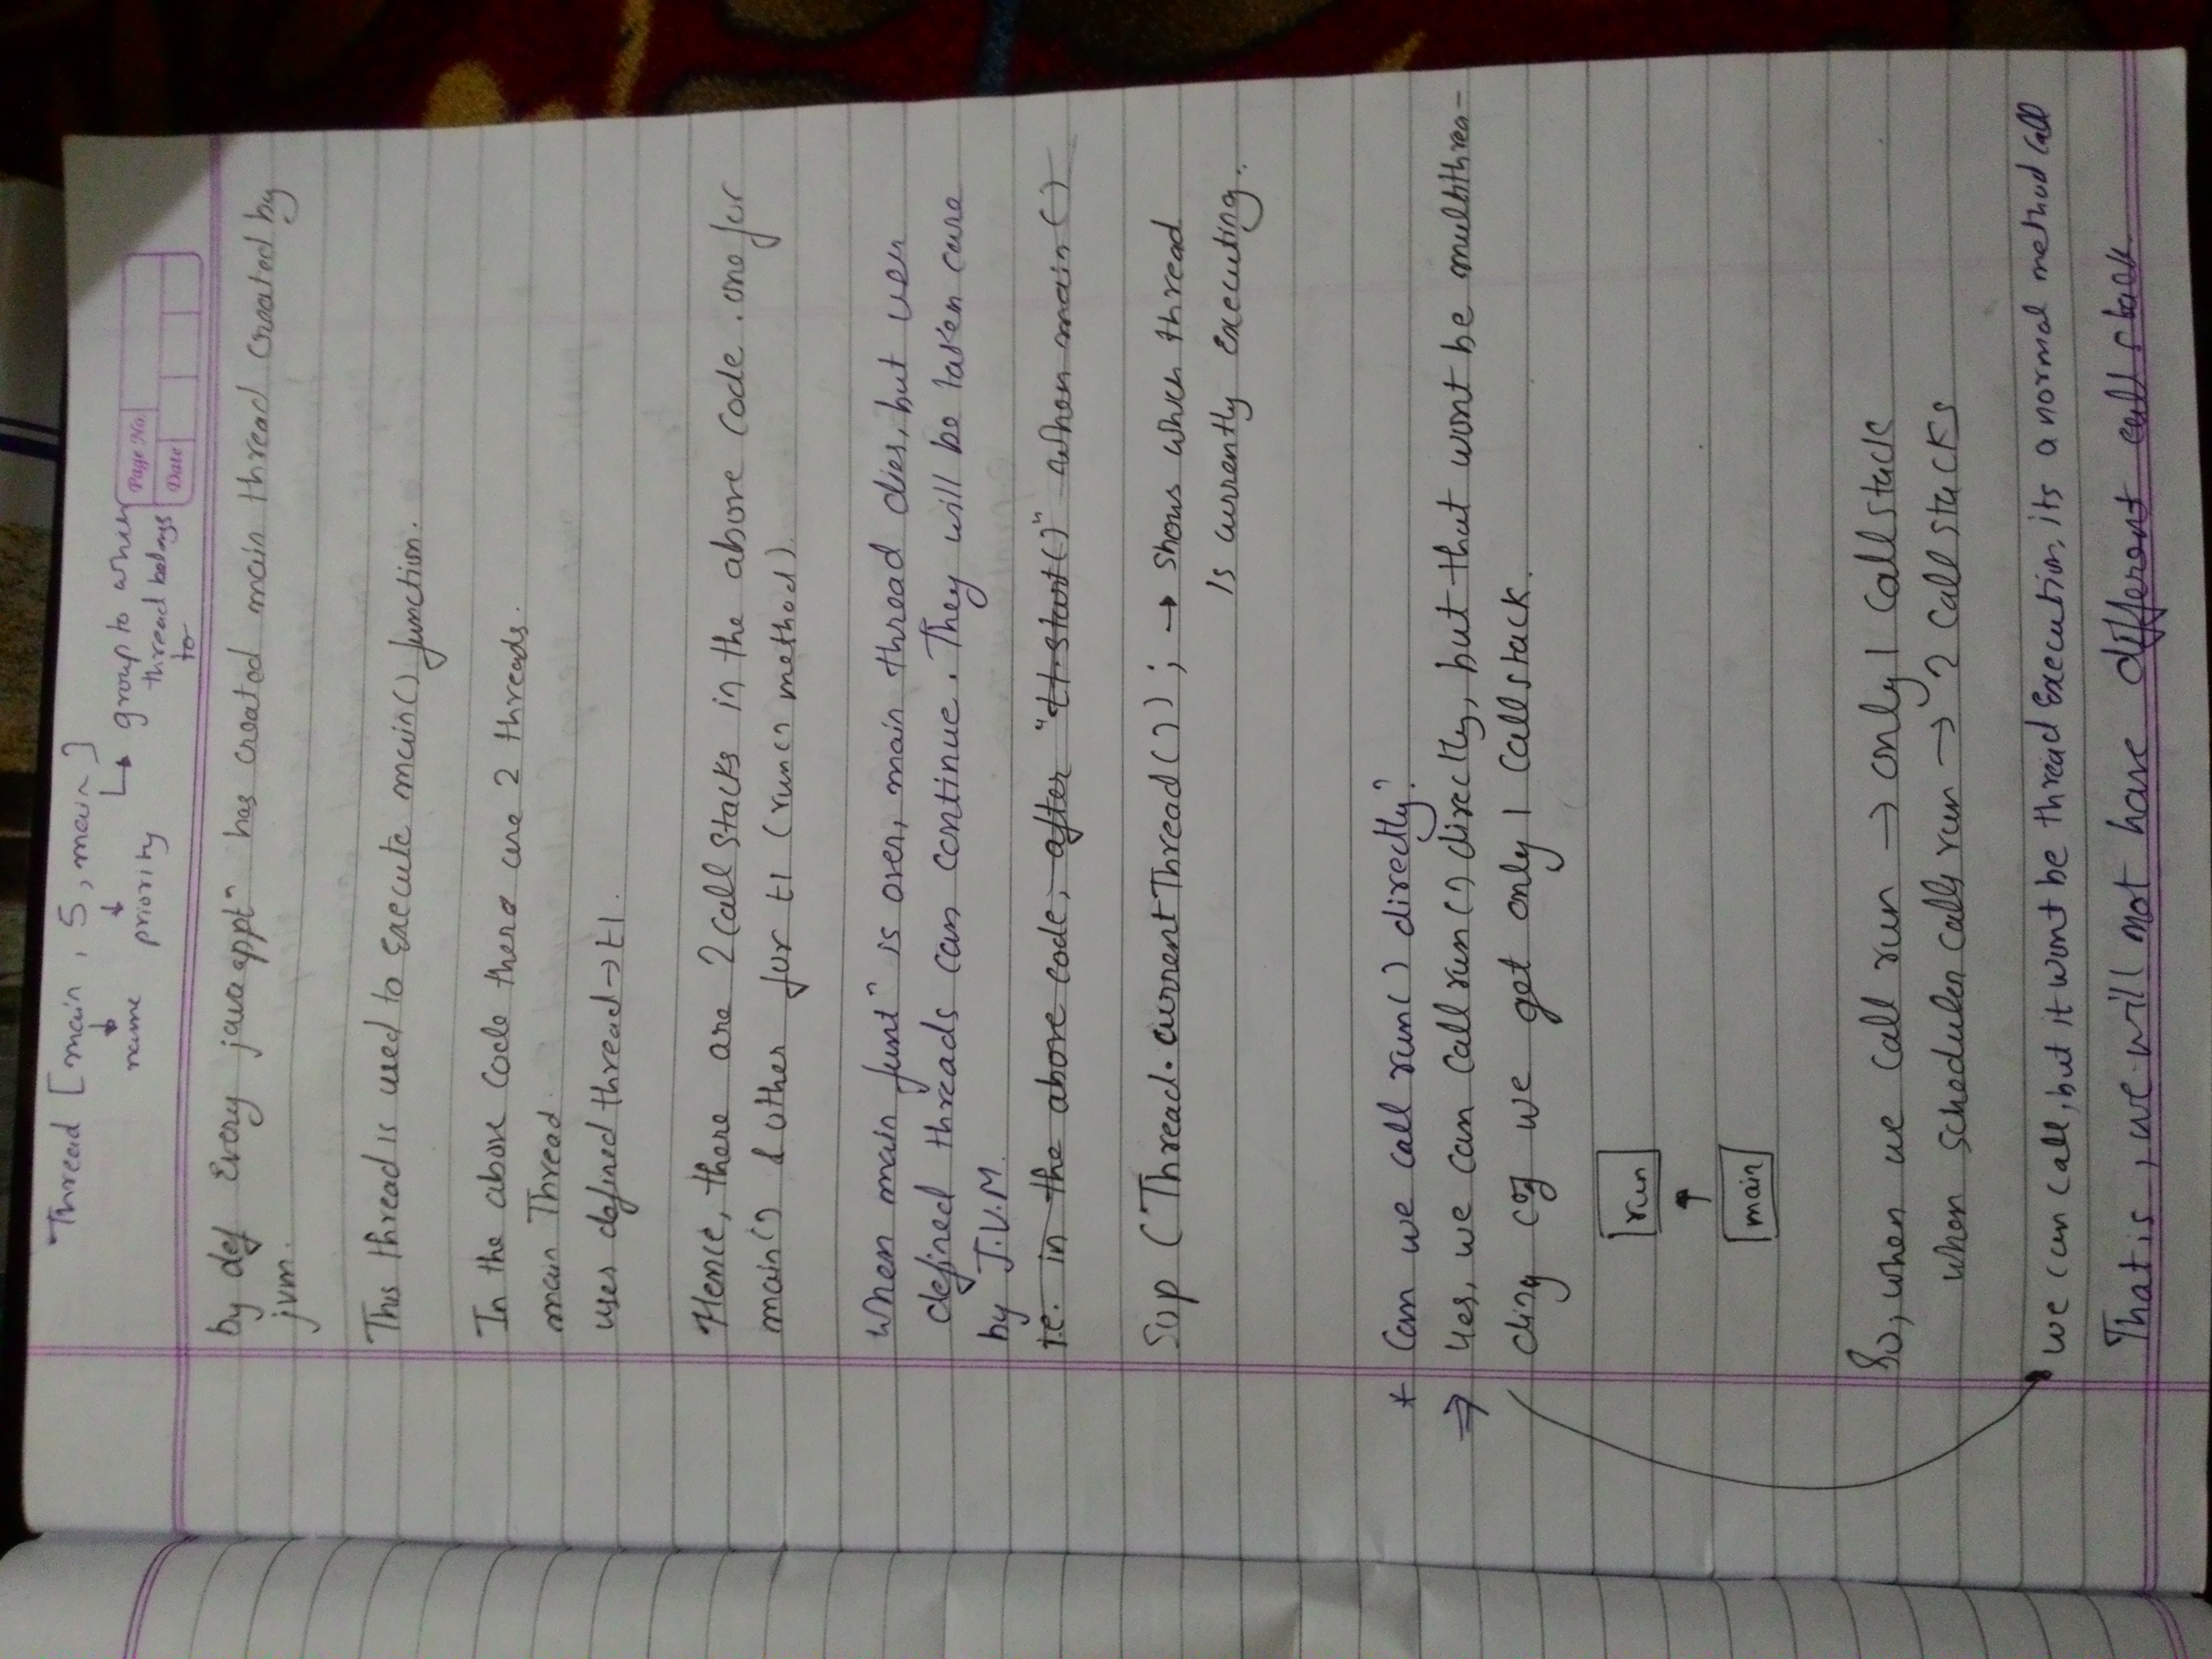 Thread [main, 5, main]
name
priority
group to which
thread belongs
to
Page No.
Date
by def Every java apptⁿ has created main thread created by
jvm.
This thread is used to execute main() function.
In the above code there are 2 threads.
main Thread.
user defined thread → t1.
Hence, there are 2 call stacks in the above code. one for
main() & other for t1 (run() method).
When main funtⁿ is over, main thread dies, but user
defined threads can continue. They will be taken care
by J.V.M.
i.e. in the above code, after "t1.start()" when main()
Sop (Thread.currentThread()); → shows which thread
is currently executing.
* Can we call run() directly?
⇒ Yes, we can call run() directly, but that wont be multithrea-
ding coz we get only 1 callstack.
run
main
So, when we call run → only 1 callstack
when scheduler calls run → 2 call stacks
we can call, but it wont be thread execution, its a normal method call
That is, we will not have different call stack.